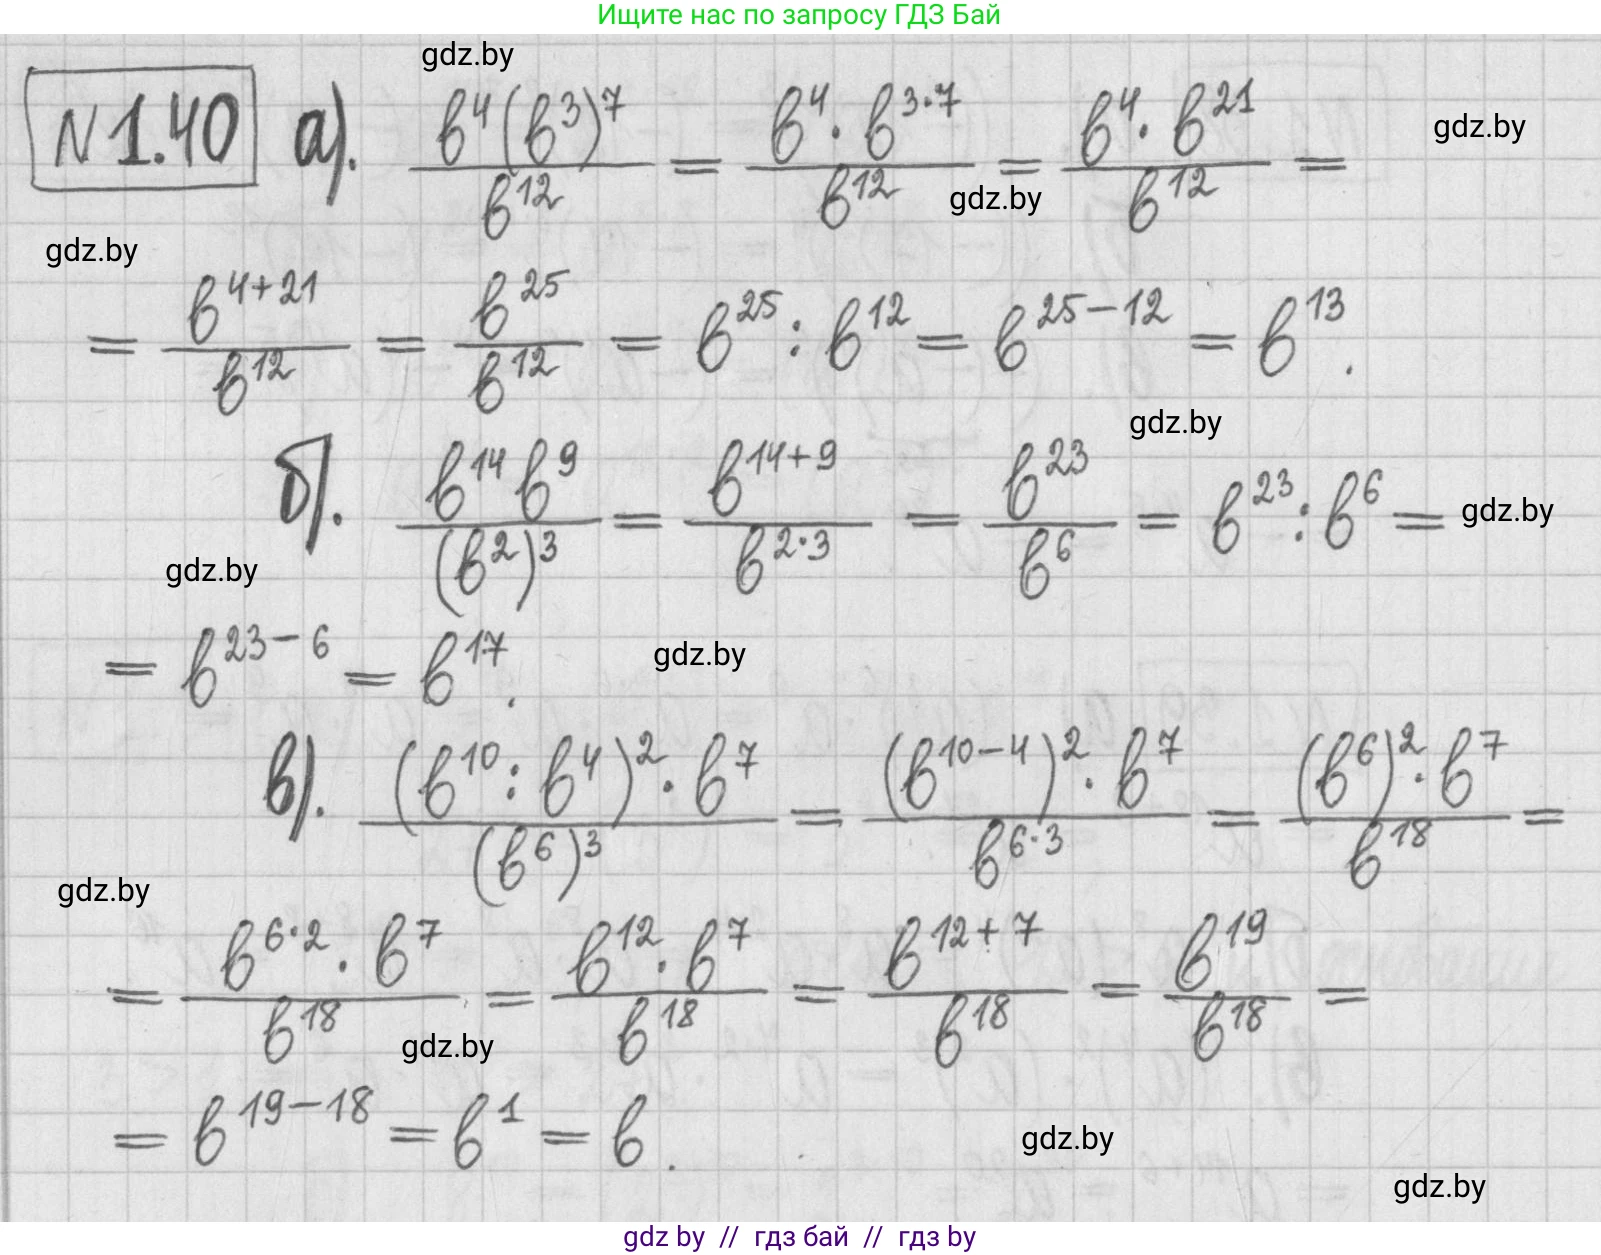 Ищите нас по запросу ГДЗ Бай
gdz.by
№1.40 а). b⁴(b³)⁷/b¹² = b⁴·b³·⁷/b¹² = b⁴·b²¹/b¹² =
gdz.by
gdz.by
gdz.by
= b⁴⁺²¹/b¹² = b²⁵/b¹² = b²⁵ : b¹² = b²⁵⁻¹² = b¹³.
gdz.by
б). b¹⁴b⁹/(b²)³ = b¹⁴⁺⁹/b²·³ = b²³/b⁶ = b²³ : b⁶ =
gdz.by
gdz.by
= b²³⁻⁶ = b¹⁷.
gdz.by
в). (b¹⁰ : b⁴)²·b⁷/(b⁶)³ = (b¹⁰⁻⁴)²·b⁷/b⁶·³ = (b⁶)²·b⁷/b¹⁸ =
gdz.by
= b⁶·²·b⁷/b¹⁸ = b¹²·b⁷/b¹⁸ = b¹²⁺⁷/b¹⁸ = b¹⁹/b¹⁸ =
gdz.by
= b¹⁹⁻¹⁸ = b¹ = b.
gdz.by
gdz.by
gdz by // гдз бай // гдз by